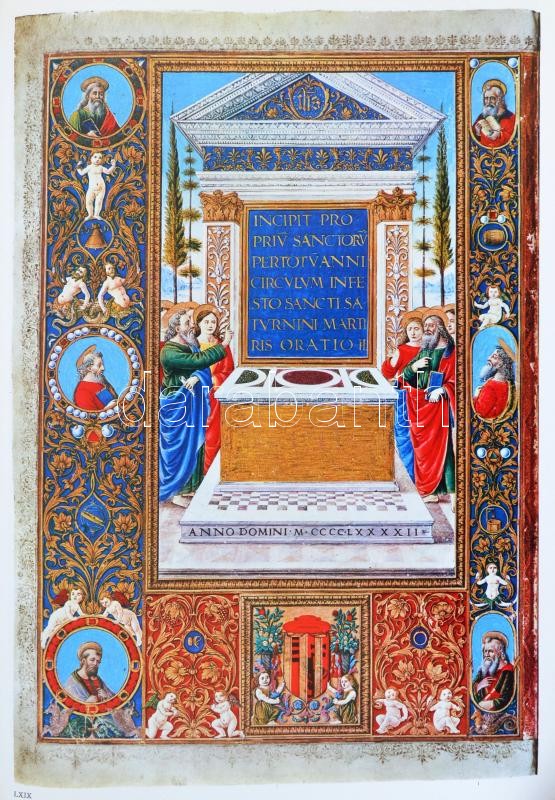 IHS
INCIPIT PRO
PRIV̄ SANCTORV̄
PER TOTV̄ ANNI
CIRCVLVM IN FE
STO SANCTI SA
TVRNINI MARTI
RIS ORATIO
darabanth
ANNO DOMINI · M · CCCCLXXXXII
LXIX